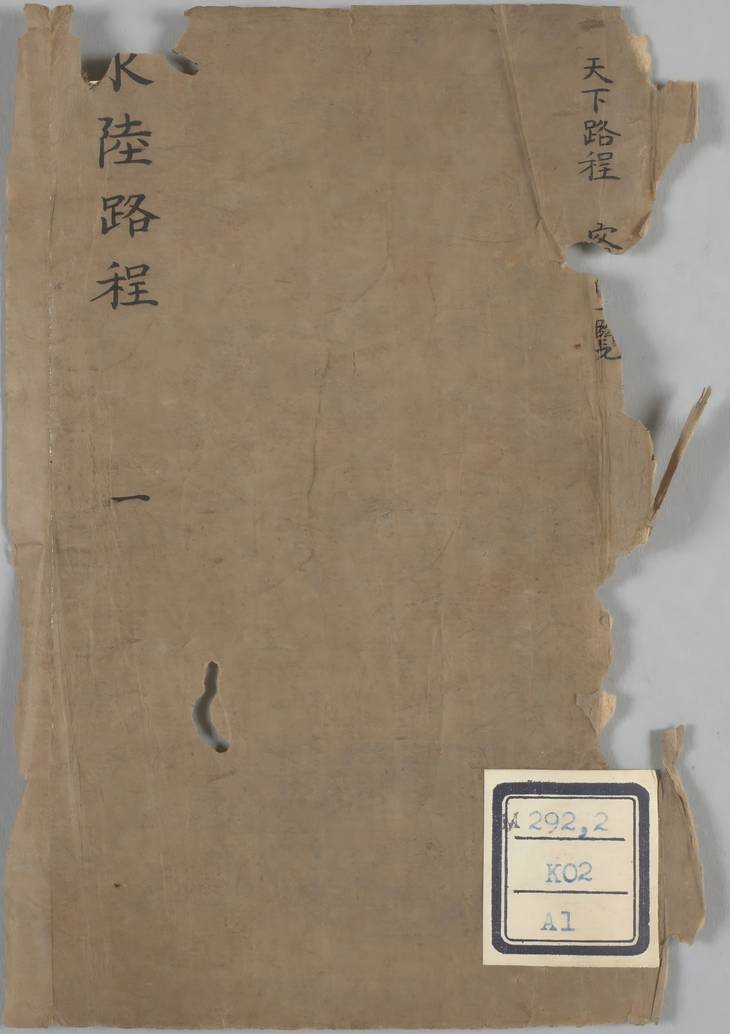 天下路程
覽
水陸路程
一
M 292,2
KO2
A1